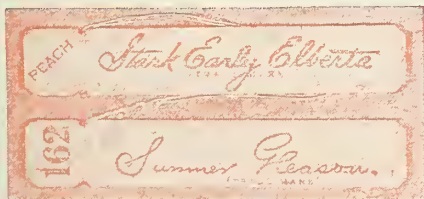 PEACH
Stark Early Elberta
162
Summer Gleason.